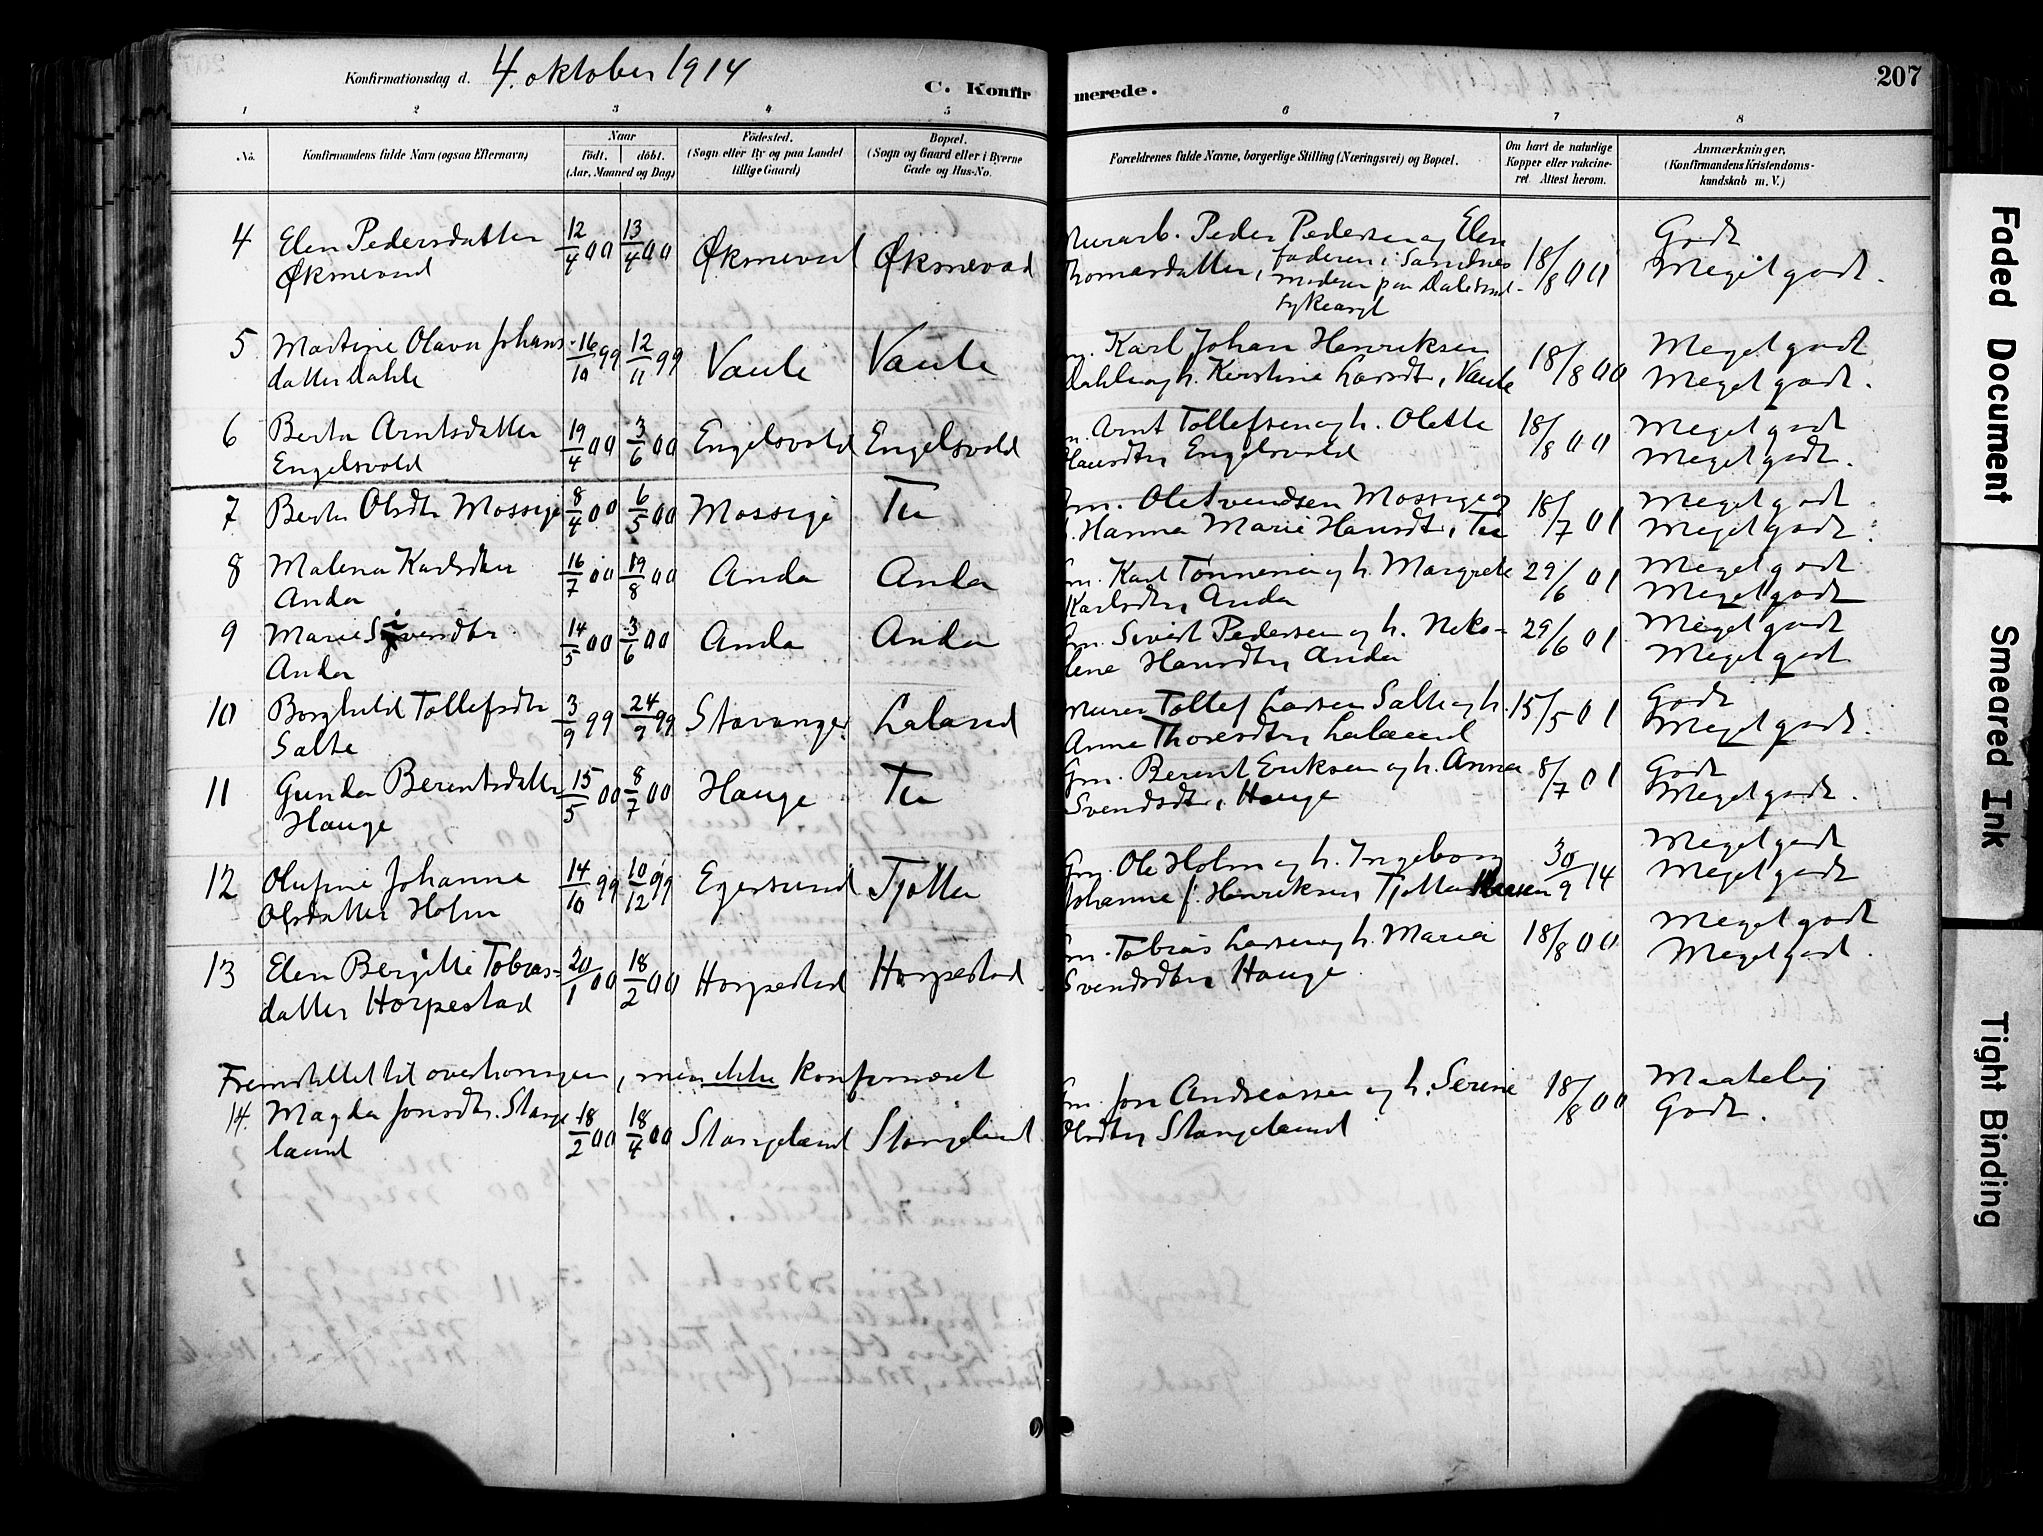 Konfirmationsdag d. 4. oktober 1914
C. Konfirmerede.
207
1 2 3 4 5 6 7 8
No.
Konfirmandens fulde Navn (ogsaa Efternavn)
Naar
födt. döbt.
(Aar, Maaned og Dag)
Födested.
(Sogn eller By og paa Landet
tillige Gaard)
Bopæl.
(Sogn og Gaard eller i Byerne
Gade og Hus-No.
Forældrenes fulde Navne, borgerlige Stilling (Næringsvei) og Bopæl.
Om havt de naturlige
Kopper eller vakcine-
ret Attest herom.
Anmærkninger,
(Konfirmandens Kristendoms-
kundskab m. V.)
4 Elen Pedersdatter 12/4 00 13/4 00 Øksnevad Øksnevad Murarb. Peder Pedersen og Elen 18/8 00 Godt
Øksnevad Thomasdatter, faderen i Sandnes Meget godt.
moderen paa Dale sind-
sykeasyl
5 Martine Olava Johans 16/10 99 12/11 99 Vaule Vaule Karl Johan Henriksen 18/8 00 Meget godt
datter Dahle Dahle og h. Kirstine Larsdt, Vaule Meget godt.
6 Berta Arntsdatter 19/4 00 3/6 00 Engelsvold Engelsvold Arnt Tollefsen og h. Olette 18/8 00 Meget godt
Engelsvold Hansdtr Engelsvold Meget godt.
7 Berta Olsdtr Mossige 8/4 00 6/5 00 Mossige Tu Gm. Ole Svendsen Mossige og 18/7 01 Meget godt.
h. Hanna Marie Hansdt, Tu Meget godt.
8 Malena Karlsdtr 16/7 00 19/8 00 Anda Anda Gm. Karl Tønnesen og h. Margrete 29/6 01 Meget godt
Anda Karlsdtr Anda Meget godt
9 Marie Sivertsdtr 14/5 00 3/6 00 Anda Anda Gm. Sivert Pedersen og h. Niko- 29/6 01 Meget godt
Anda line Hansdtr Anda Meget godt
10 Borghild Tollefsdtr 3/9 99 24/9 99 Stavanger Laland Murer Tollef Larsen Salte og h. 15/5 01 Godt
Salte Anne Thoresdtr Laland Meget godt.
11 Gunda Berentsdatter 15/5 00 8/7 00 Hauge Tu Gm. Berent Eriksen og h. Anna 8/7 01 Godt
Hauge Svendsdtr, Hauge Meget godt.
12 Olufine Johanne 14/10 99 10/12 99 Egersund Tjøtta Gm. Ole Holm og h. Ingeborg 30/9 14 Meget godt
Olsdatter Holm Johanne f. Henriksen Tjøtta Meget godt
13 Elen Bergitte Tobias- 20/1 00 18/2 00 Horpestad Horpestad Gm. Tobias Larsen og h. Maria 18/8 00 Meget godt
datter Horpestad Svendsdtr Hauge Meget godt.
Fremstillet til overhøringen, men ikke konfirmeret
14. Magda Jonsdtr. Stange 18/2 00 18/4 00 Stangeland Stangeland Gm. Jon Andreassen og h. Serine 18/8 00 Maatelig
land Olsdtr Stangeland Godt.
Faded Document
Smeared Ink
Tight Binding